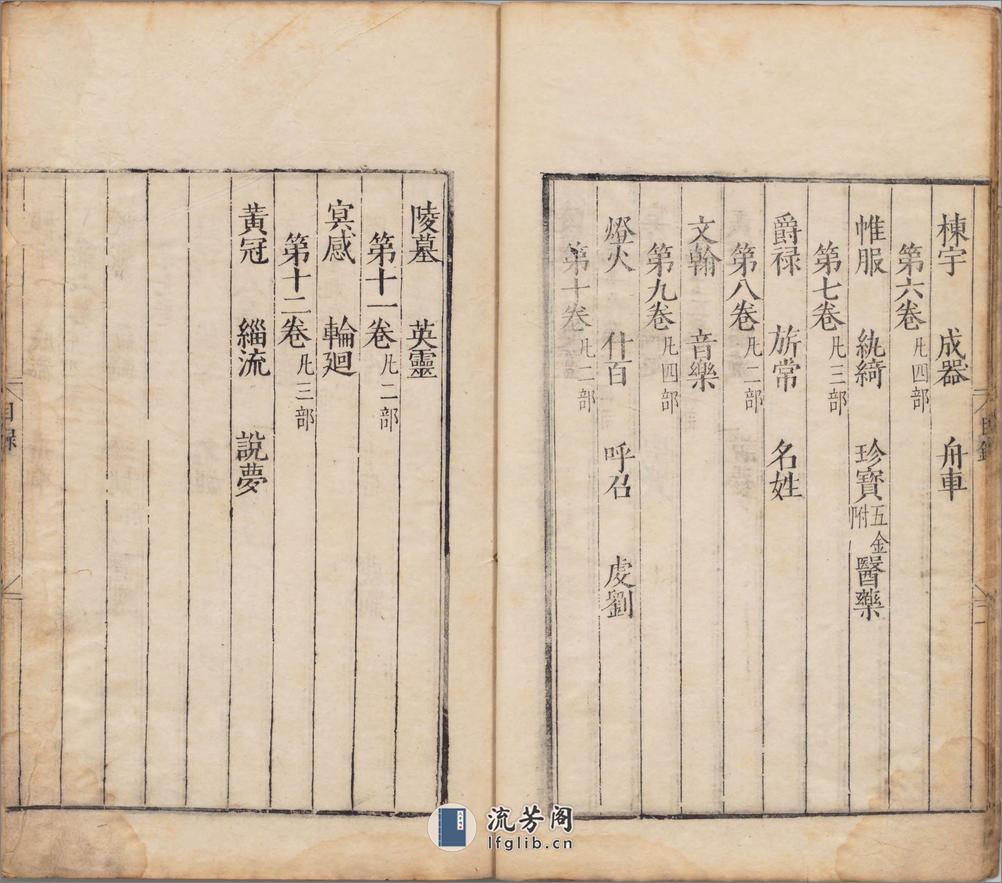 棟宇　成器　舟車
第六卷凡四部
帷服　紈綺　珍寶五金附　醫藥
第七卷凡三部
爵祿　旂常　名姓
第八卷凡二部
文翰　音樂
第九卷凡四部
燈火　什百　呼召　虔劉
第十卷凡二部
陵墓　英靈
第十一卷凡二部
冥感　輪廻
第十二卷凡三部
黃冠　緇流　說夢
目錄
流芳阁
lfglib.cn